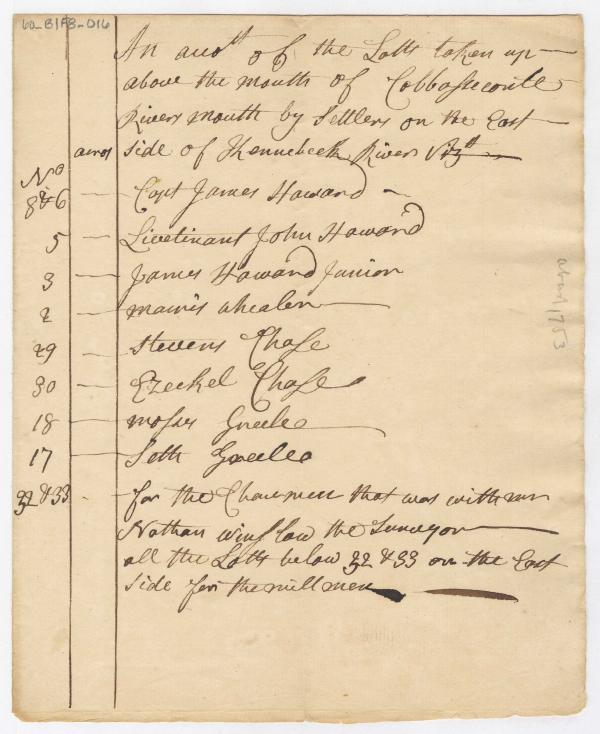 60_B1F8_016
An accott of the Lotts taken up
above the mouth of Cobbasseconte
Rivers mouth by Settlers on the East
acros side of Kennebeck River Vizt
No
8 & 6 Capt James Howard
5 Lievetinant John Howard
3 James Howard Junior
2 Whealer
29 Stevens Chase
30 Ezeckel Chase
18 Mosses Greele
17 Seth Greele
32 & 33 for the Chanmen that was with mr
Nathan Winslow the Surveyor
all the Lotts below 32 & 33 on the East
side for the mill men
about 1753